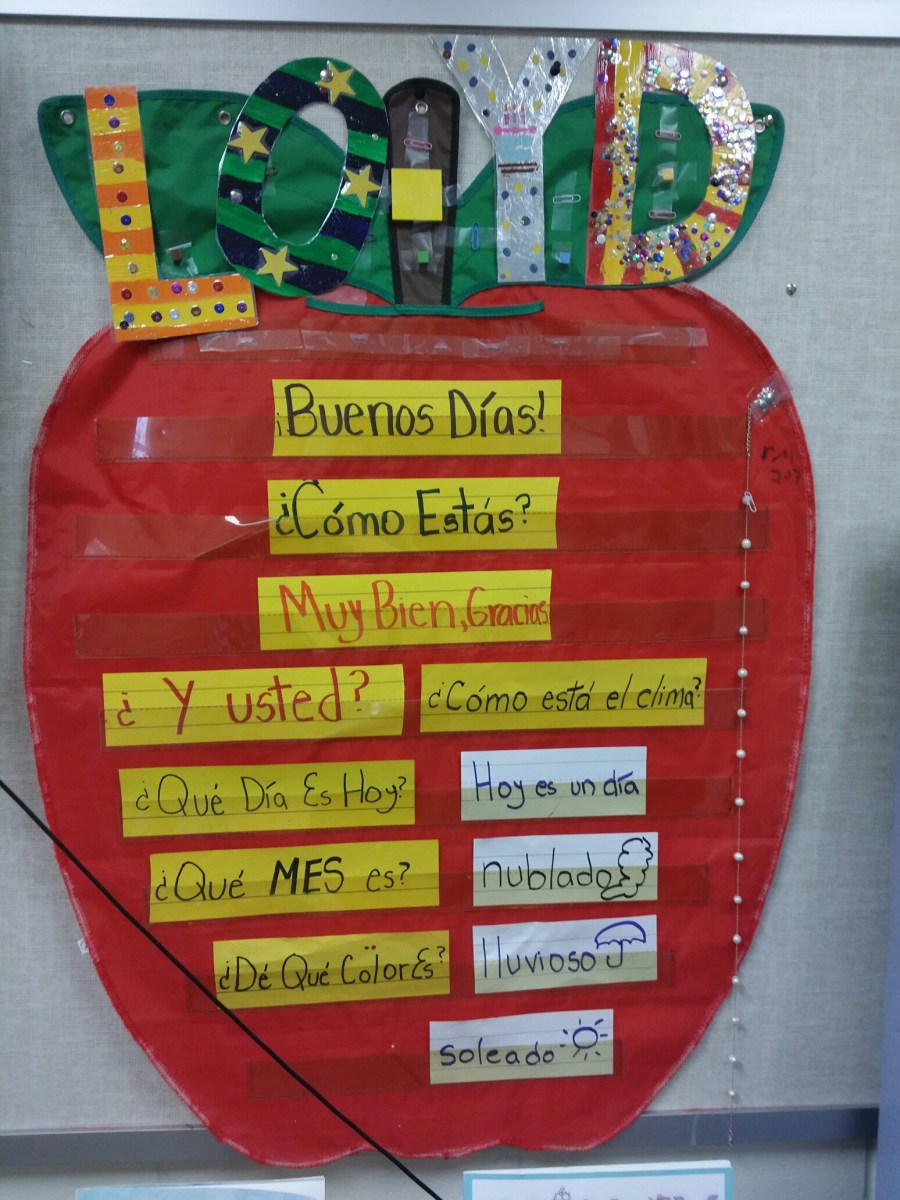 LOYD
¡Buenos Días!
¿Cómo Estás?
Muy Bien, Gracias
¿Y usted?
¿Cómo está el clima?
¿Qué Día Es Hoy?
Hoy es un día
¿Qué MES es?
nublado
¿Dé Qué Cölor Es?
lluvioso
soleado